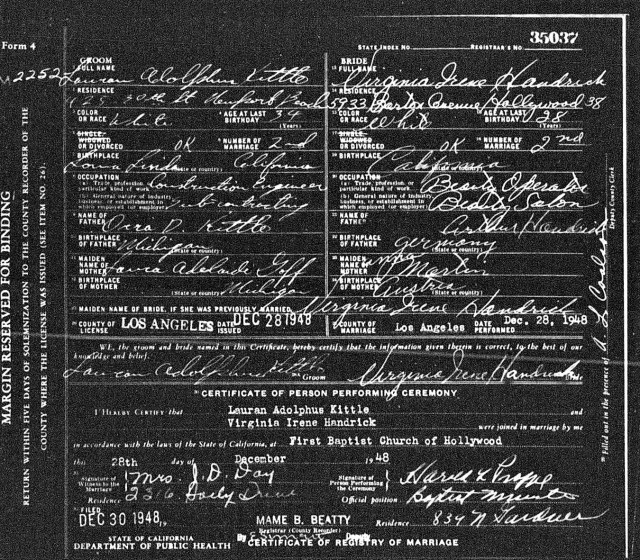 Form 4
STATE INDEX NO. REGISTRAR'S NO. 35037
GROOM BRIDE
FULL NAME FULL NAME
M 2252 Lauran Adolphus Kittle Virginia Irene Handrick
RESIDENCE RESIDENCE
30th St Newport Beach 5933 Barton Avenue Hollywood 38
COLOR OR RACE White AGE AT LAST BIRTHDAY 34 (Years) COLOR OR RACE White AGE AT LAST BIRTHDAY 28 (Years)
SINGLE, WIDOWED OR DIVORCED OK NUMBER OF MARRIAGE 2nd SINGLE, WIDOWED OR DIVORCED OK NUMBER OF MARRIAGE 2nd
BIRTHPLACE Loma Linda California (State or country) BIRTHPLACE California (State or country)
OCCUPATION OCCUPATION
(a) Trade, profession, or particular kind of work Construction Engineer (a) Trade, profession, or particular kind of work Beauty Operator
(b) General nature of industry, business, or establishment in which employed (or employer) Contracting (b) General nature of industry, business, or establishment in which employed (or employer) Beauty Salon
NAME OF FATHER Kittle NAME OF FATHER Arthur Handrick
BIRTHPLACE OF FATHER Michigan (State or country) BIRTHPLACE OF FATHER Germany
MAIDEN NAME OF MOTHER Laura Adelaide Goff MAIDEN NAME OF MOTHER Martin
BIRTHPLACE OF MOTHER Michigan (State or country) BIRTHPLACE OF MOTHER Austria (State or country)
MAIDEN NAME OF BRIDE, IF SHE WAS PREVIOUSLY MARRIED Virginia Irene Handrick
COUNTY OF LICENSE LOS ANGELES DATE ISSUED DEC 28 1948 COUNTY OF MARRIAGE Los Angeles DATE PERFORMED Dec. 28, 1948
WE, the groom and bride named in this Certificate, hereby certify that the information given therein is correct, to the best of our
knowledge and belief.
Lauran Adolphus Kittle Groom Virginia Irene Handrick Bride
CERTIFICATE OF PERSON PERFORMING CEREMONY
I HEREBY CERTIFY that Lauran Adolphus Kittle and
Virginia Irene Handrick were joined in marriage by me
in accordance with the laws of the State of California, at First Baptist Church of Hollywood
this 28th day of December 1948
Signature of Witness to the Marriage Mrs. J. D. Day Signature of Person Performing the Ceremony Harold L Proppe
Residence 2316 Drive Official position Baptist Minister
FILED
DEC 30 1948, 19 MAME B. BEATTY Residence 834 N Gardner
Registrar (County Recorder)
STATE OF CALIFORNIA By Deputy
DEPARTMENT OF PUBLIC HEALTH CERTIFICATE OF REGISTRY OF MARRIAGE
MARGIN RESERVED FOR BINDING
RETURN WITHIN FIVE DAYS OF SOLEMNIZATION TO THE COUNTY RECORDER OF THE
COUNTY WHERE THE LICENSE WAS ISSUED (SEE ITEM NO. 26).
Filled out in the presence of
Deputy County Clerk